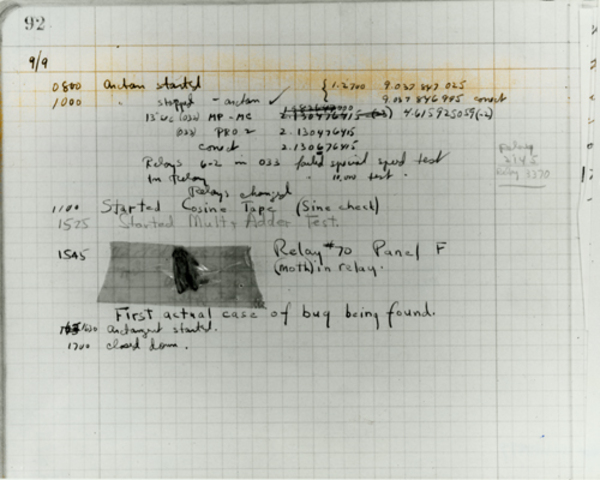 92
9/9
0800 antan started { 1.2700 9.037 847 025
1000 " stopped - antan ✓ 9.037 846 995 correct
13"uc (032) MP - MC 2.130476415 (-3) 4.615925059(-2)
(033) PRO 2 2.130476415
correct 2.130676415
Relays 6-2 in 033 failed special speed test
in relay " 10,000 test .
Relays changed
Relay
2145
Relay 3370
1100 Started Cosine Tape (Sine check)
1525 Started Mult+Adder Test.
1545 Relay #70 Panel F
(moth) in relay.
First actual case of bug being found.
1630 antangent started.
1700 closed down.